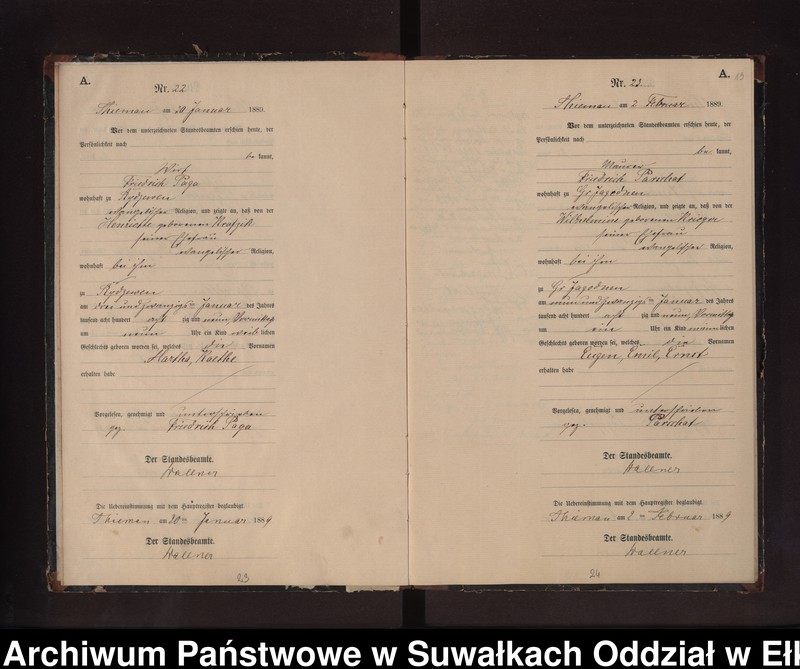 A.
Nr. 22
Thieman am 30 Januar 1889.
Vor dem unterzeichneten Standesbeamten erschien heute, der
Persönlichkeit nach
be kannt,
Wirt
Friedrich Paga
wohnhaft zu Rydzewen
evangelischer Religion, und zeigte an, daß von der
Henriette geborenen
seiner Ehefrau
evangelischer Religion,
wohnhaft bei ihm
zu Rydzewen
am drei und zwanzigsten Januar des Jahres
tausend acht hundert acht zig und neun, Vormittags
um neun Uhr ein Kind weib lichen
Geschlechts geboren worden sei, welches die Vornamen
Martha, Kaethe
erhalten habe
Vorgelesen, genehmigt und unterschrieben
gez. Friedrich Paga
Der Standesbeamte.
Wallner
Die Uebereinstimmung mit dem Hauptregister beglaubigt.
Thieman am 30ten Januar 1889
Der Standesbeamte.
Wallner
23
A. 13
Nr. 23
Thieman am 2 Februar 1889.
Vor dem unterzeichneten Standesbeamten erschien heute, der
Persönlichkeit nach
be kannt,
Maurer
Friedrich
wohnhaft zu Gr Jagodnen
evangelischer Religion, und zeigte an, daß von der
Wilhelmine geborenen Krieger
seiner Ehefrau
evangelischer Religion,
wohnhaft bei ihm
zu Gr Jagodnen
am neun und zwanzigsten Januar des Jahres
tausend acht hundert acht zig und neun, Vormittags
um ein Uhr ein Kind männ lichen
Geschlechts geboren worden sei, welches die Vornamen
Eugen, Emil, Ernst
erhalten habe
Vorgelesen, genehmigt und unterschrieben
gez.
Der Standesbeamte.
Wallner
Die Uebereinstimmung mit dem Hauptregister beglaubigt.
Thieman am 2ten Februar 1889
Der Standesbeamte.
Wallner
24
Archiwum Państwowe w Suwałkach Oddział w Eł